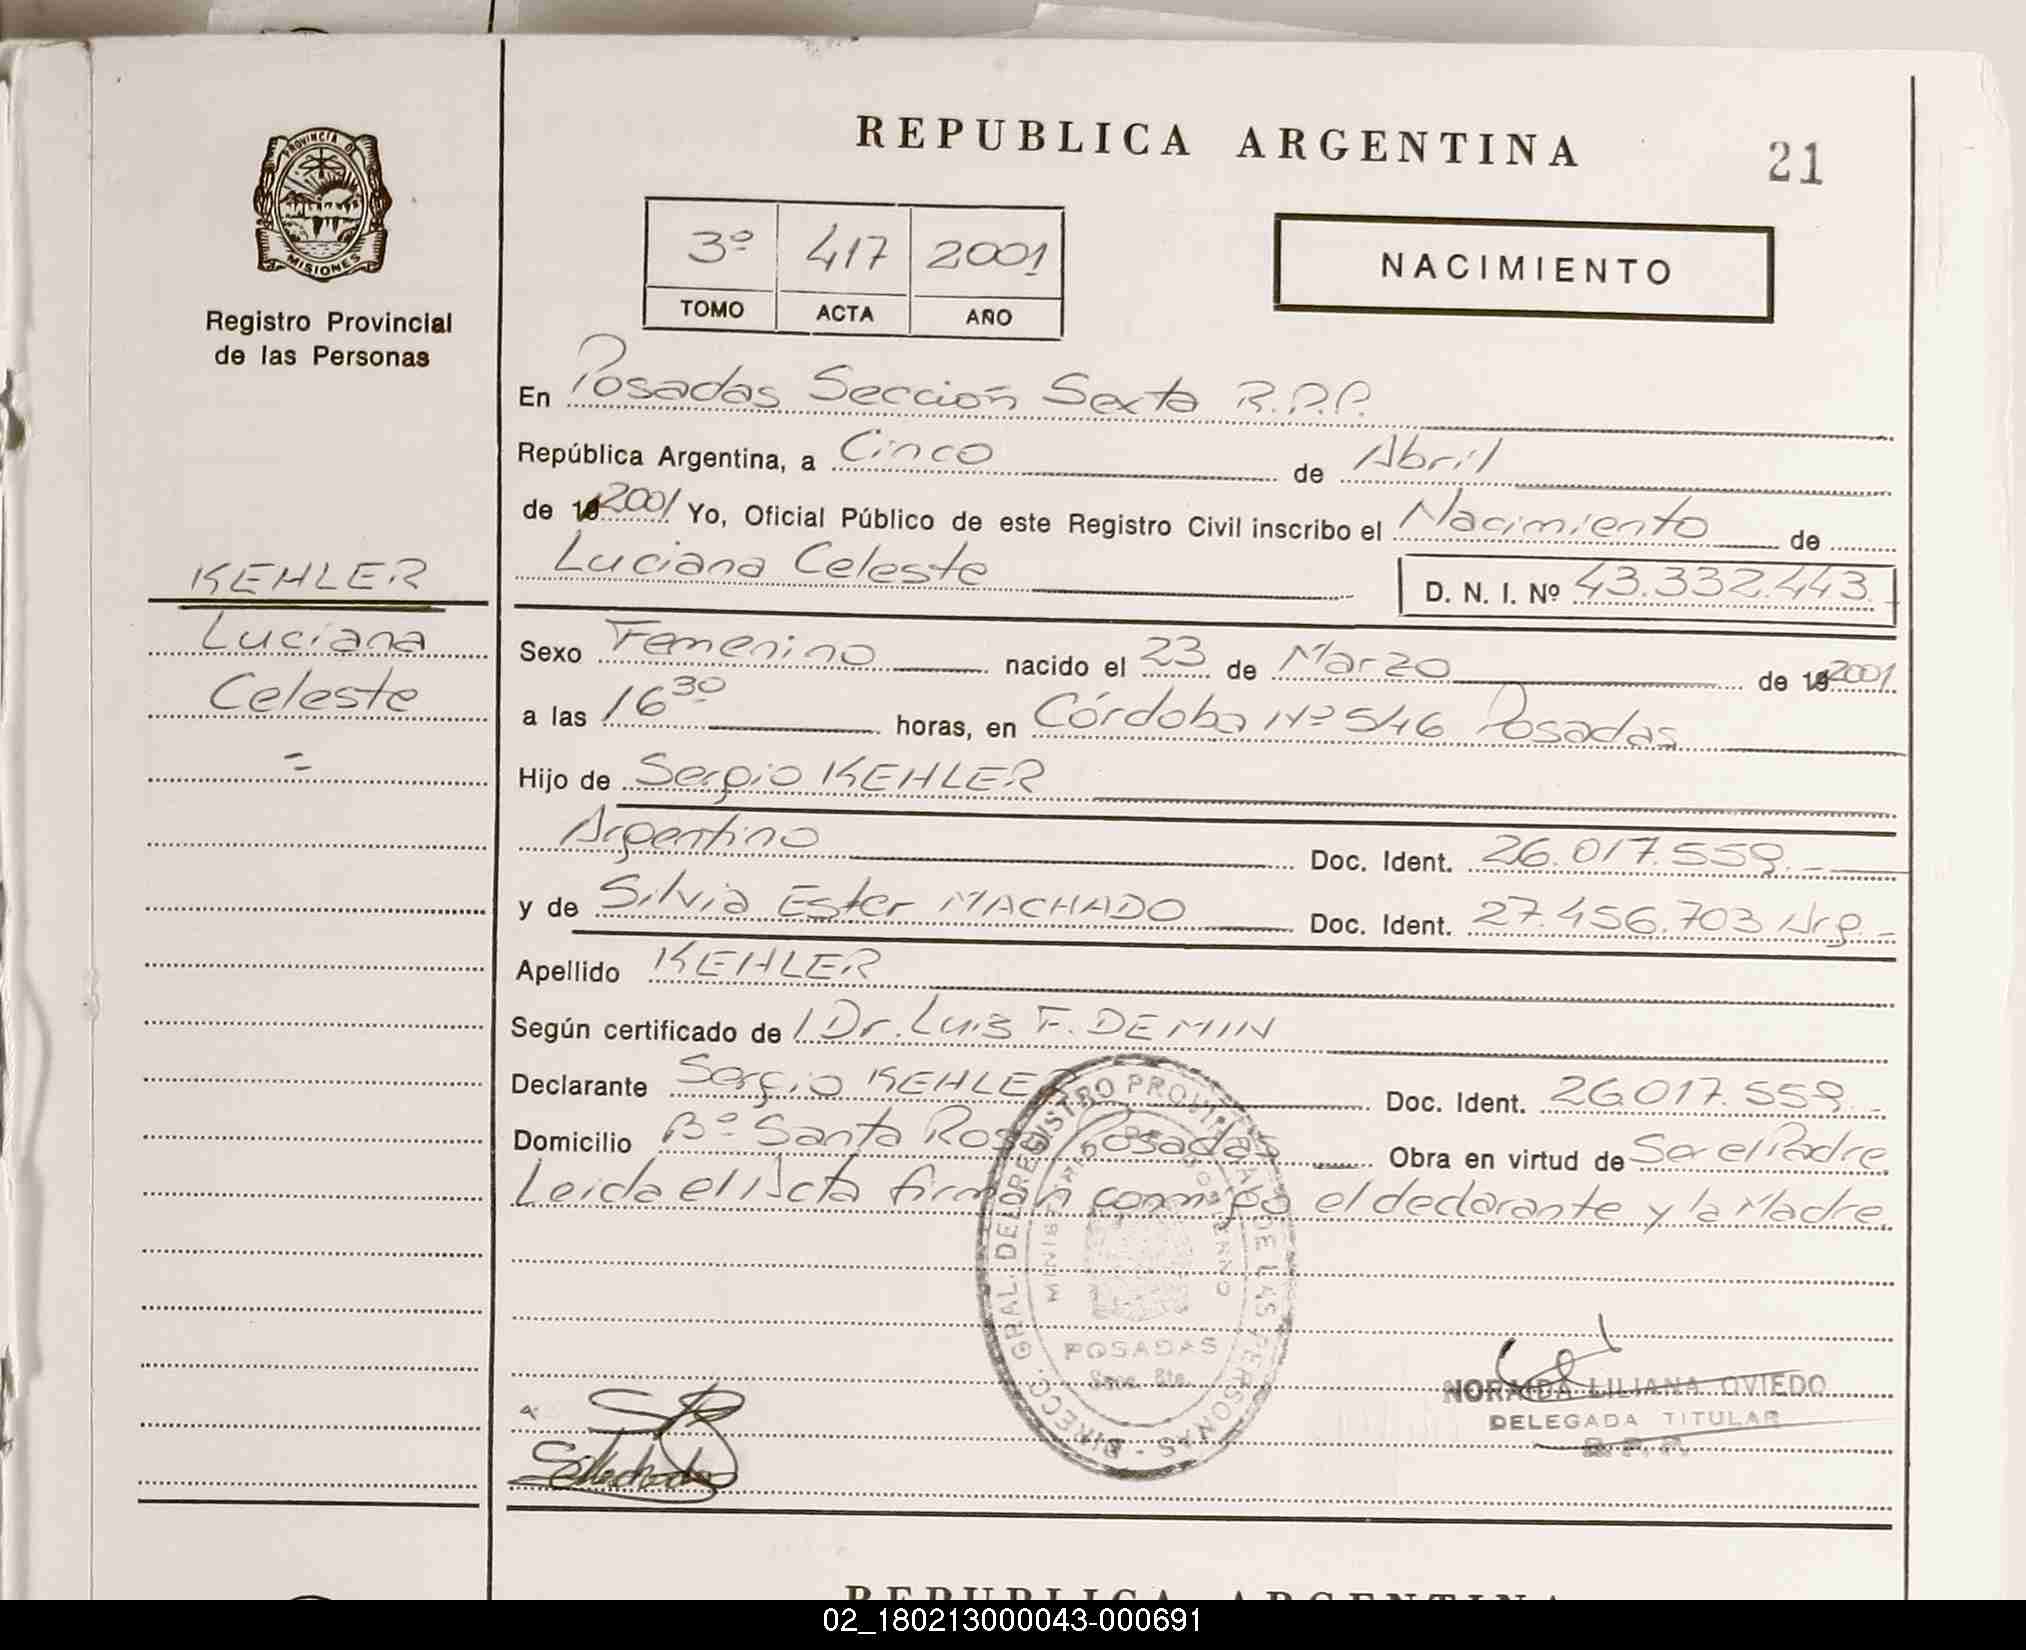 PROVINCIA DE
MISIONES
Registro Provincial
de las Personas
KEHLER
Luciana
Celeste
REPUBLICA ARGENTINA
21
3º 417 2001
TOMO ACTA AÑO
NACIMIENTO
En Posadas Sección Sexta R.P.P.
República Argentina, a Cinco de Abril
de 19 2001 Yo, Oficial Público de este Registro Civil inscribo el Nacimiento de
Luciana Celeste D. N. I. Nº 43.332.443.-
Sexo Femenino nacido el 23 de Marzo de 19 2001
a las 16 30 horas, en Córdoba Nº 546 Posadas
Hijo de Sergio KEHLER
Argentino Doc. Ident. 26.017.559.-
y de Silvia Ester MACHADO Doc. Ident. 27.456.703 Arg.-
Apellido KEHLER
Según certificado de / Dr. Luis F. DEMIN
Declarante Sergio KEHLER Doc. Ident. 26.017.559.-
Domicilio Bº Santa Rosa Posadas Obra en virtud de Ser el Padre
Leida el Acta firman conmigo el declarante y la Madre.
DIRECC. GRAL. DEL REGISTRO PROVINCIAL DE LAS PERSONAS
POSADAS
Secc. 6ta.
NORAIDA LILIANA OVIEDO
DELEGADA TITULAR
R.P.P.
SMachado
REPUBLICA ARGENTINA
02_180213000043-000691